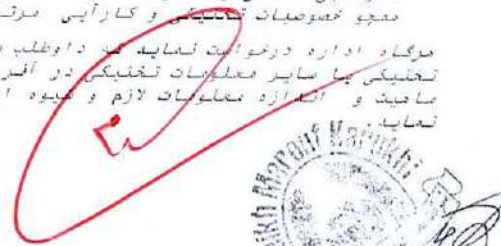 همچو خصوصیات تخنیکی و کارآیی مرتـ
هرگاه اداره درخواست نماید که داوطلب
تخنیکی یا سایر معلومات تخنیکی در آفر
ماهیت و اندازه معلومات لازم و شیوه ا
نماید.
Marouf Karukhi